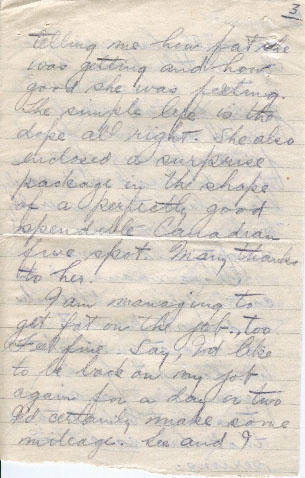 3
telling me how fat she
was getting and how
good she was feeling.
The simple life is the
dope all right. She also
enclosed a surprise
package in the shape
of a perfectly good
spendable Canadian
five spot. Many thanks
to her.
I am managing to
get fat on the job, too
Feel fine. Say, I'd like
to be back on my job
again for a day or two
I'd certainly make some
mileage. Les and I